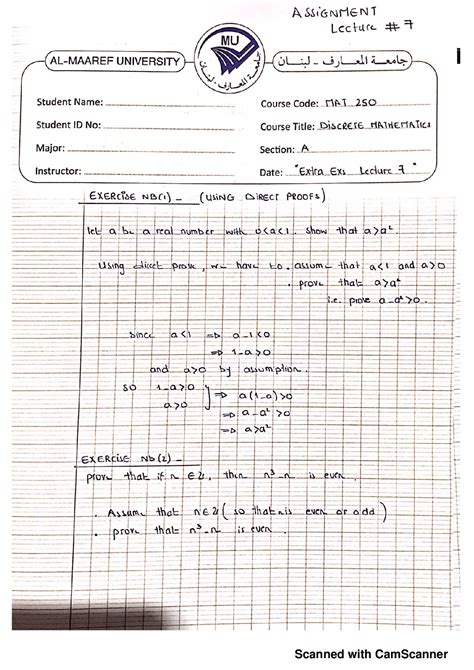 ASSIGNMENT
Lecture # 7
MU
AL-MAAREF UNIVERSITY
جامعة المعارف - لبنان
Student Name:
Course Code: MAT 250
Student ID No:
Course Title: DISCRETE MATHEMATICS
Major:
Section: A
Instructor:
Date: "Extra Exs Lecture 7"
EXERCISE NB(1) - (USING DIRECT PROOFS)
let a be a real number with 0<a<1. show that a>a².
Using direct prove, we have to. assume that a<1 and a>0
. prove that a>a²
i.e. prove a-a²>0.
Since a<1 ⇒ a-1<0
⇒ 1-a>0
and a>0 by assumption.
so 1-a>0
a>0 } ⇒ a(1-a)>0
⇒ a-a²>0
⇒ a>a²
EXERCISE Nb(2) -
prove that if n ∈ ℤ, then n³-n is even.
. Assume that n∈ℤ ( so that n is even or odd )
. prove that n³-n is even.
Scanned with CamScanner